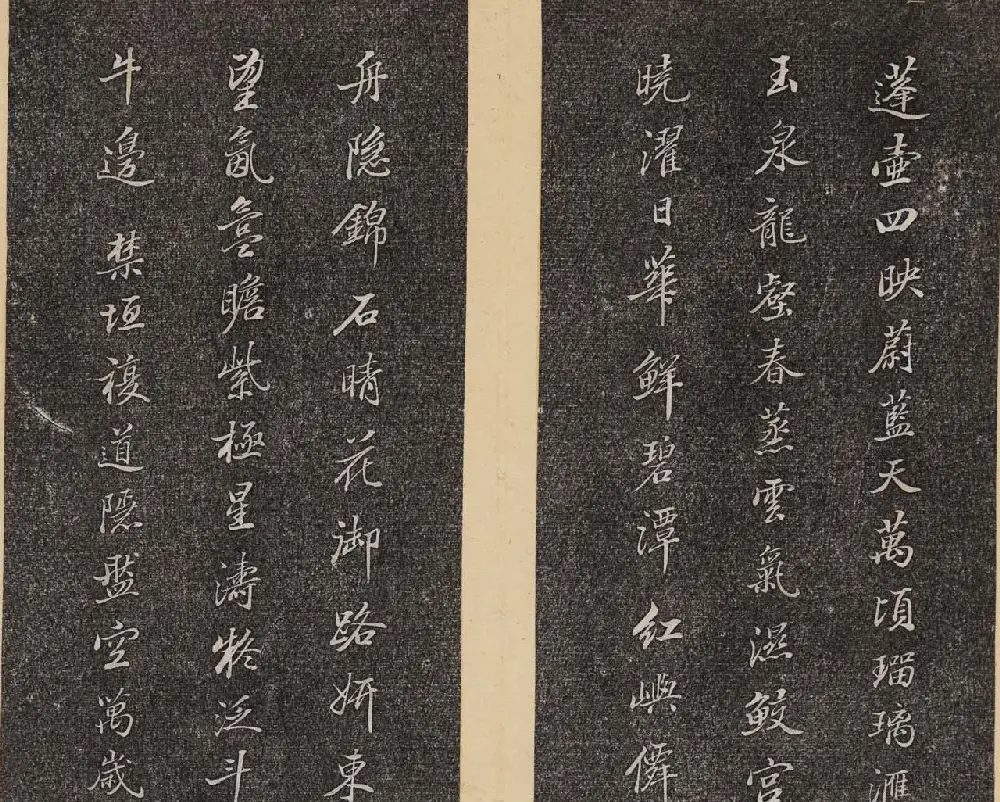 蓬壺四映蔚藍天萬頃瑠璃滙
玉泉龍壑春蒸雲氣濕鮫宮
曉濯日華鮮碧潭紅嶼僊
舟隐錦石晴花御路妍東
望氤氳瞻紫極星濤泛斗
牛邊禁垣複道隱空萬歲